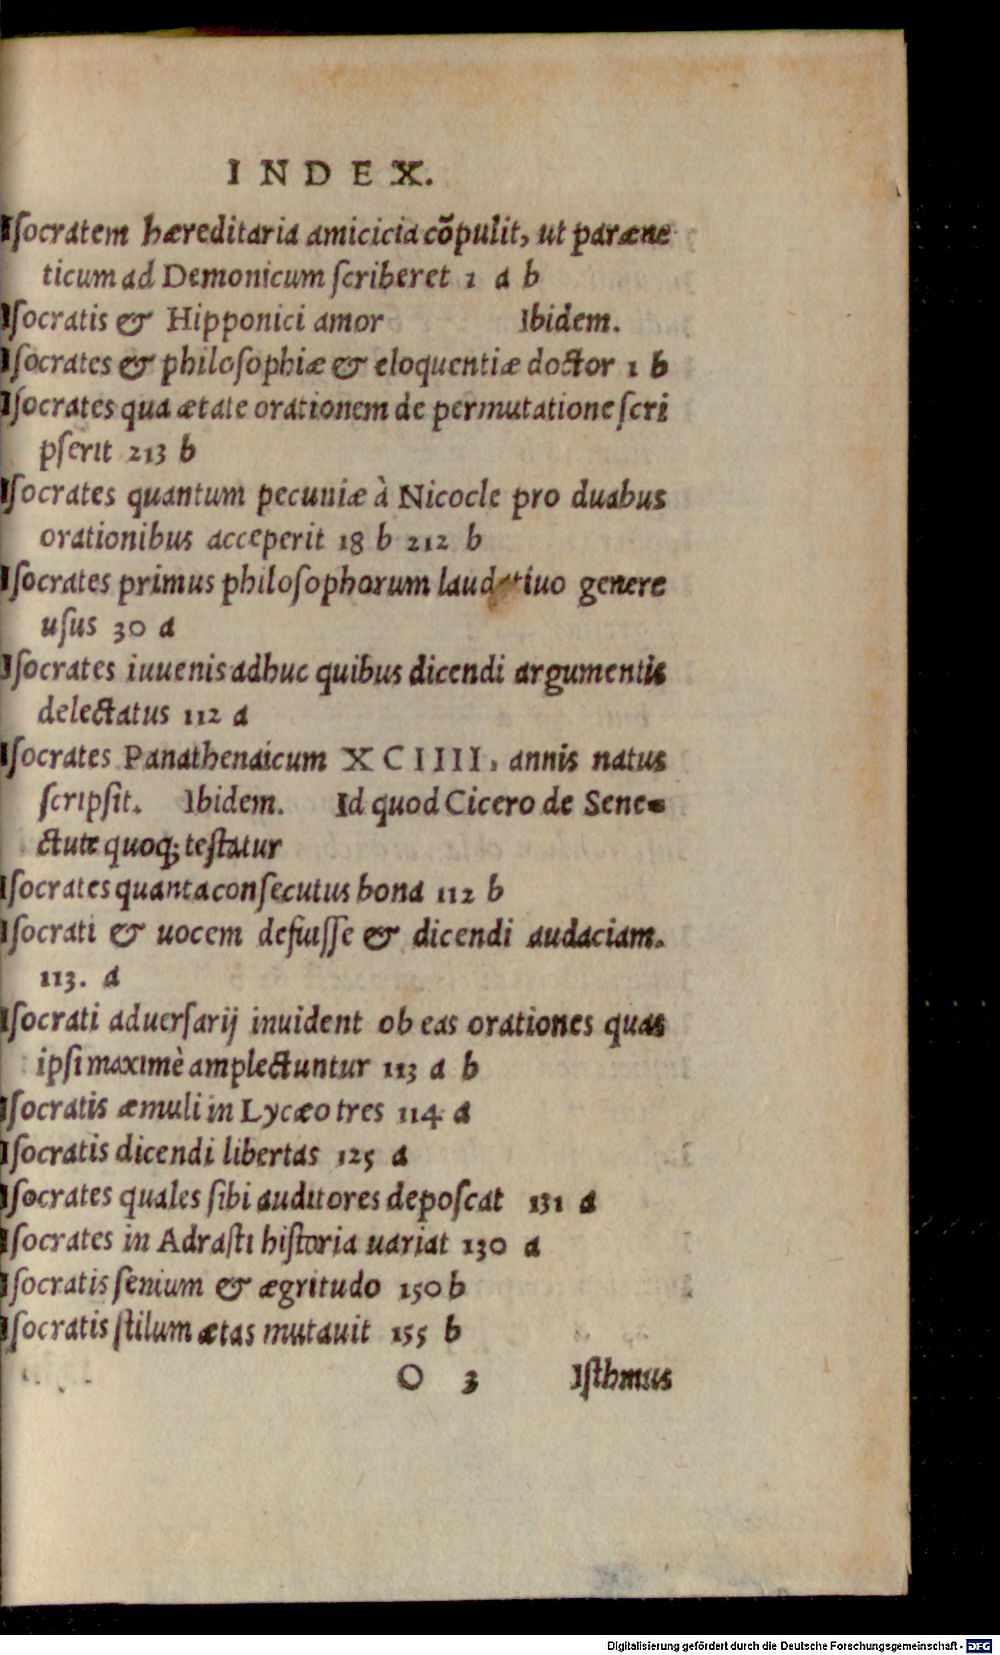 INDEX.
Iſocratem hæreditaria amicicia cõpulit, ut paræne
ticum ad Demonicum ſcriberet 1 a b
Iſocratis & Hipponici amor Ibidem.
Iſocrates & philoſophiæ & eloquentiæ doctor 1 b
Iſocrates qua ætate orationem de permutatione ſcri
pſerit 213 b
Iſocrates quantum pecuniæ à Nicocle pro duabus
orationibus acceperit 18 b 212 b
Iſocrates primus philoſophorum laudatiuo genere
uſus 30 a
Iſocrates iuuenis adhuc quibus dicendi argumentis
delectatus 112 a
Iſocrates Panathenaicum XCIIII, annis natus
ſcripſit. Ibidem. Id quod Cicero de Sene-
ctute quoq; teſtatur
Iſocrates quanta conſecutus bona 112 b
Iſocrati & uocem defuiſſe & dicendi audaciam.
113. a
Iſocrati aduerſarij inuident ob eas orationes quas
ipſi maximè amplectuntur 113 a b
Iſocratis æmuli in Lycæo tres 114 a
Iſocratis dicendi libertas 125 a
Iſocrates quales ſibi auditores depoſcat 131 a
Iſocrates in Adraſti hiſtoria uariat 130 a
Iſocratis ſenium & ægritudo 150 b
Iſocratis ſtilum ætas mutauit 155 b
O 3 Iſthmus
Digitalisierung gefördert durch die Deutsche Forschungsgemeinschaft - DFG